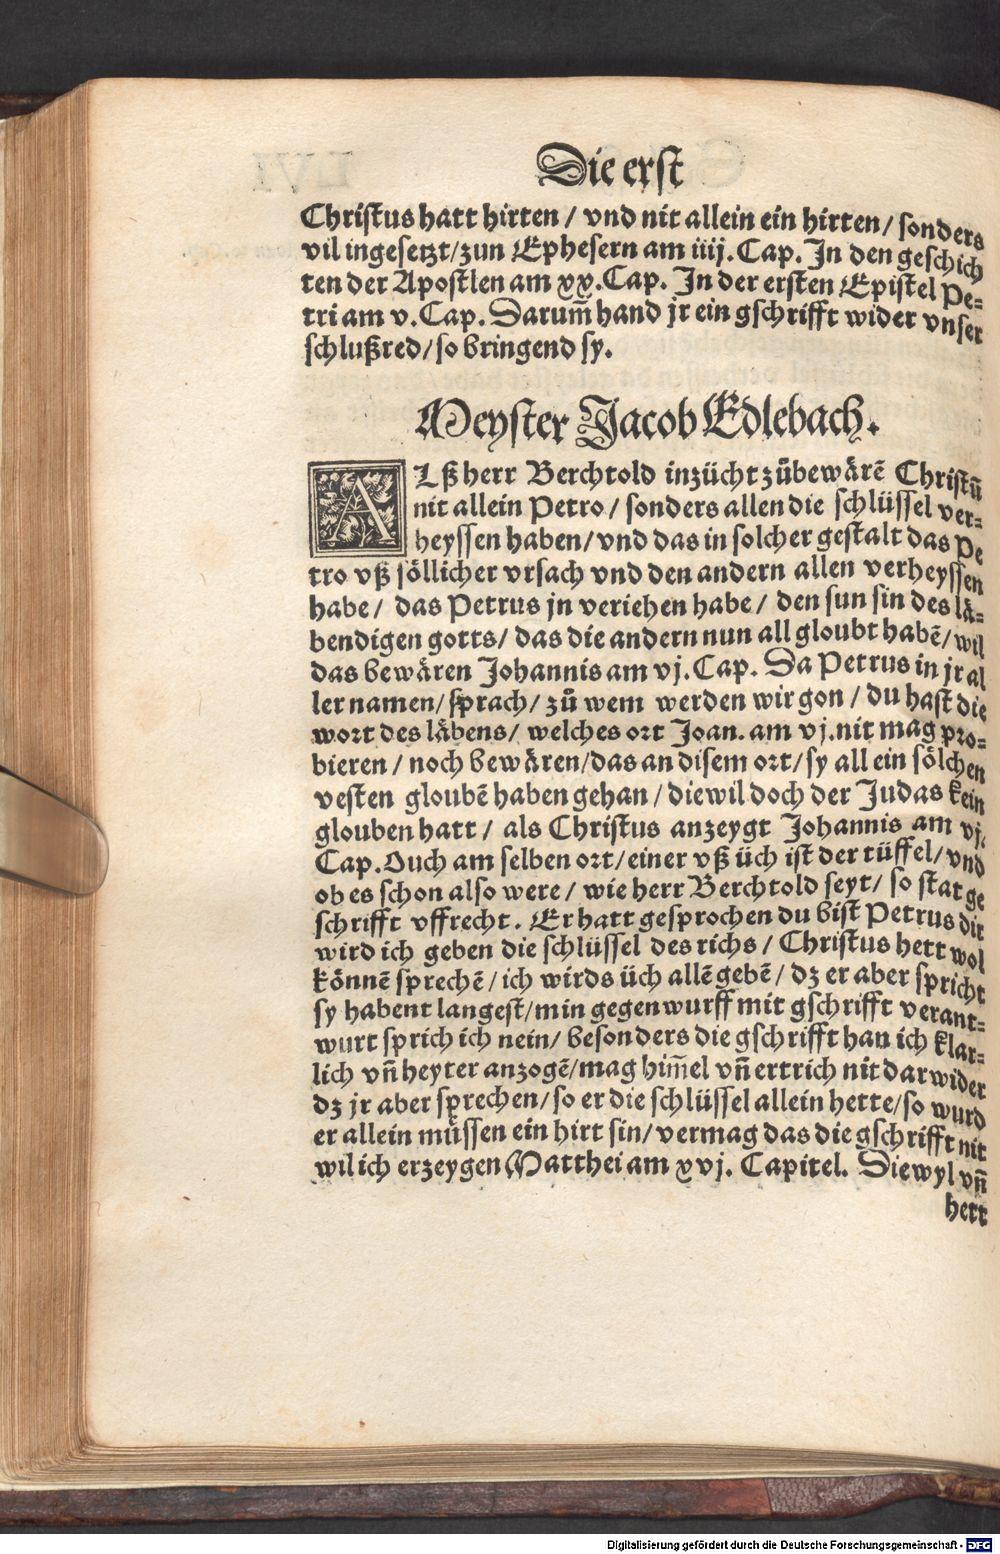 Die erst
Christus hatt hirten / vnd nit allein ein hirten / sonders
vil ingesetzt / zun Ephesern am iiij. Cap. In den geschich
ten der Apostlen am xx. Cap. In der ersten Epistel Pe-
tri am v. Cap. Darum̃ hand jr ein gschrifft wider vnser
schlußred / so bringend sy.
Meyster Jacob Edlebach.
ALß herr Berchtold inzücht zů bewärẽ Christũ
nit allein Petro / sonders allen die schlüssel ver-
heyssen haben / vnd das in solcher gestalt das Pe
tro vß söllicher vrsach vnd den andern allen verheyssen
habe / das Petrus jn veriehen habe / den sun sin des lä-
bendigen gotts / das die andern nun all gloubt habẽ / wil
das bewären Johannis am vj. Cap. Da Petrus in jr al
ler namen / sprach / zů wem werden wir gon / du hast die
wort des läbens / welches ort Joan. am vj. nit mag pro-
bieren / noch bewären / das an disem ort / sy all ein sölchen
vesten gloubẽ haben gehan / diewil doch der Judas kein
glouben hatt / als Christus anzeygt Johannis am vj.
Cap. Ouch am selben ort / einer vß üch ist der tüffel / vnd
ob es schon also were / wie herr Berchtold seyt / so stat ge
schrifft vffrecht. Er hatt gesprochen du bist Petrus dir
wird ich geben die schlüssel des richs / Christus hett wol
könnẽ sprechẽ / ich wirds üch allẽ gebẽ / dz er aber spricht
sy habent langest / min gegenwurff mit gschrifft verant-
wurt sprich ich nein / besonders die gschrifft han ich klar-
lich vñ heyter anzogẽ / mag him̃el vñ ertrich nit darwider
dz jr aber sprechen / so er die schlüssel allein hette / so wurd
er allein müssen ein hirt sin / vermag das die gschrifft nit
wil ich erzeygen Matthei am xvj. Capitel. Diewyl vñ
herr
Digitalisierung gefördert durch die Deutsche Forschungsgemeinschaft - DFG